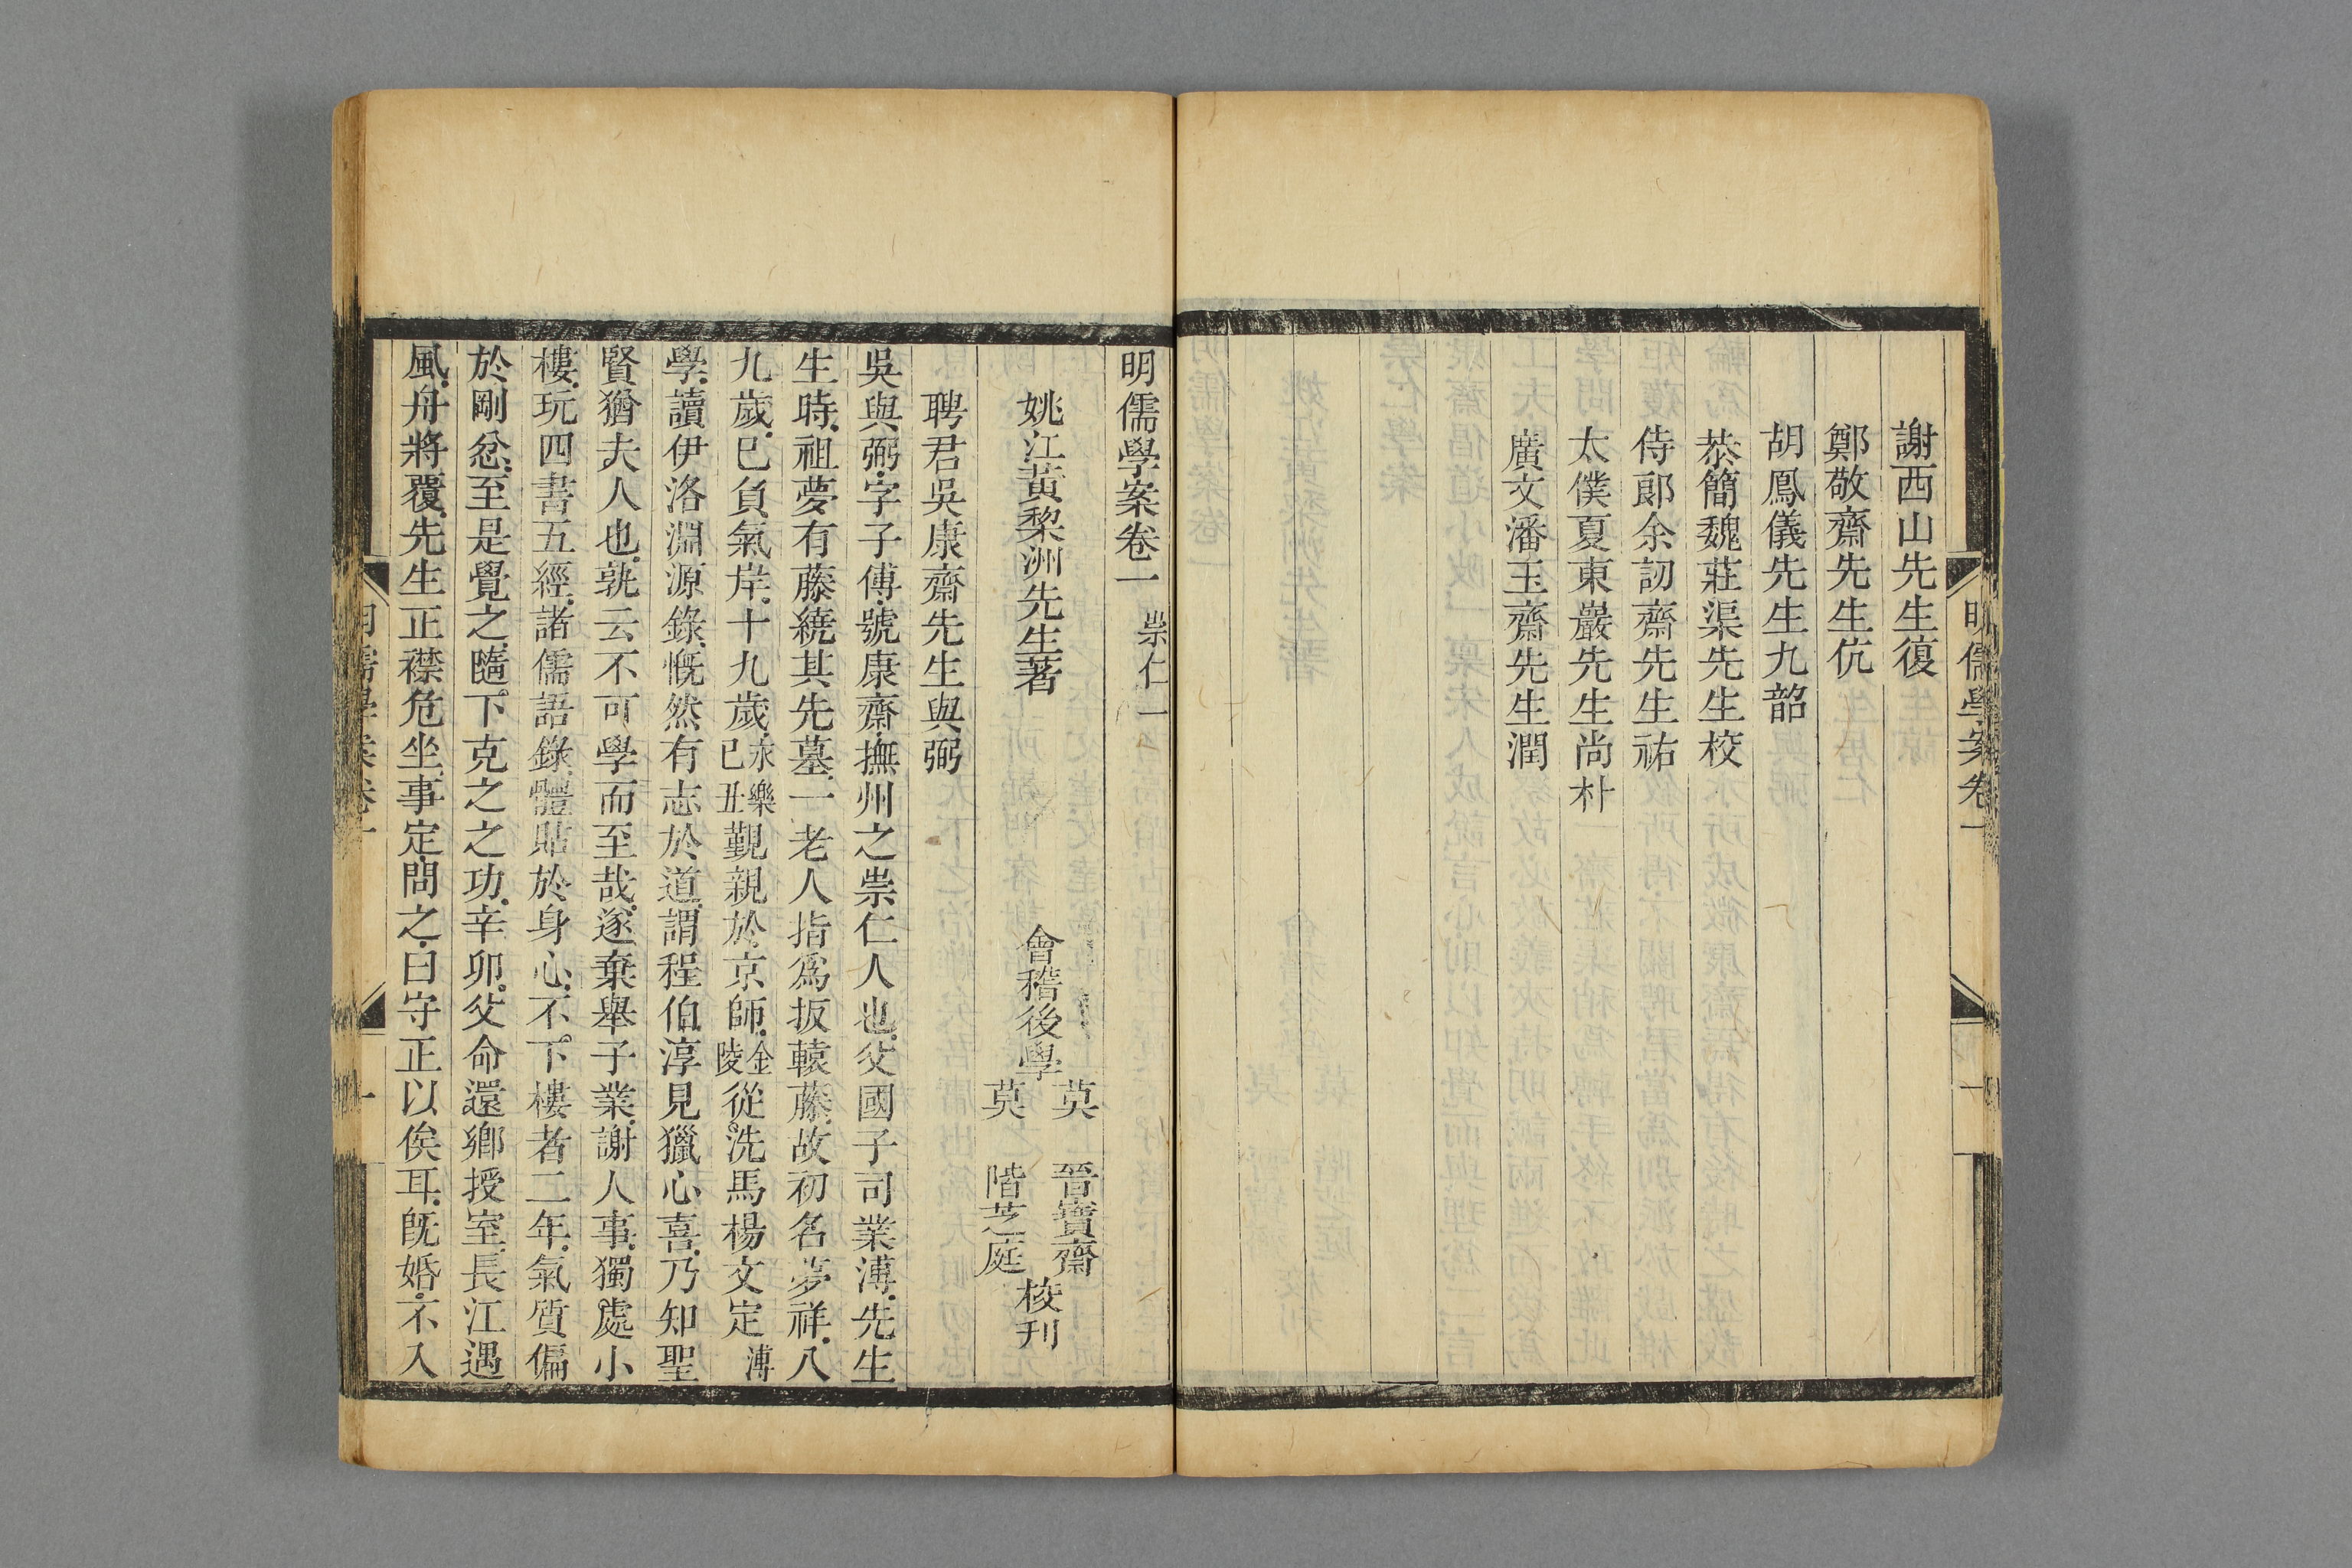 謝西山先生復
鄭敬齋先生伉
胡鳳儀先生九韶
恭簡魏莊渠先生校
侍郎余訒齋先生祐
太僕夏東巖先生尚朴
廣文潘玉齋先生潤
明儒學案卷一
一
明儒學案卷一 崇仁一
姚江黃黎洲先生著
會稽後學
莫 晉寶齋
莫 階芝庭
校刊
聘君吳康齋先生與弼
吳與弼字子傅號康齋撫州之崇仁人也父國子司業溥先生
生時祖夢有藤繞其先墓一老人指爲扳轅藤故初名夢祥八
九歲已負氣岸十九歲永樂己丑覲親於京師金陵從洗馬楊文定溥
學讀伊洛淵源錄慨然有志於道謂程伯淳見獵心喜乃知聖
賢猶夫人也孰云不可學而至哉遂棄舉子業謝人事獨處小
樓玩四書五經諸儒語錄體貼於身心不下樓者二年氣質偏
於剛忿至是覺之隨下克之之功辛卯父命還鄉授室長江遇
風舟將覆先生正襟危坐事定問之曰守正以俟耳旣婚不入
明儒學案卷一
一